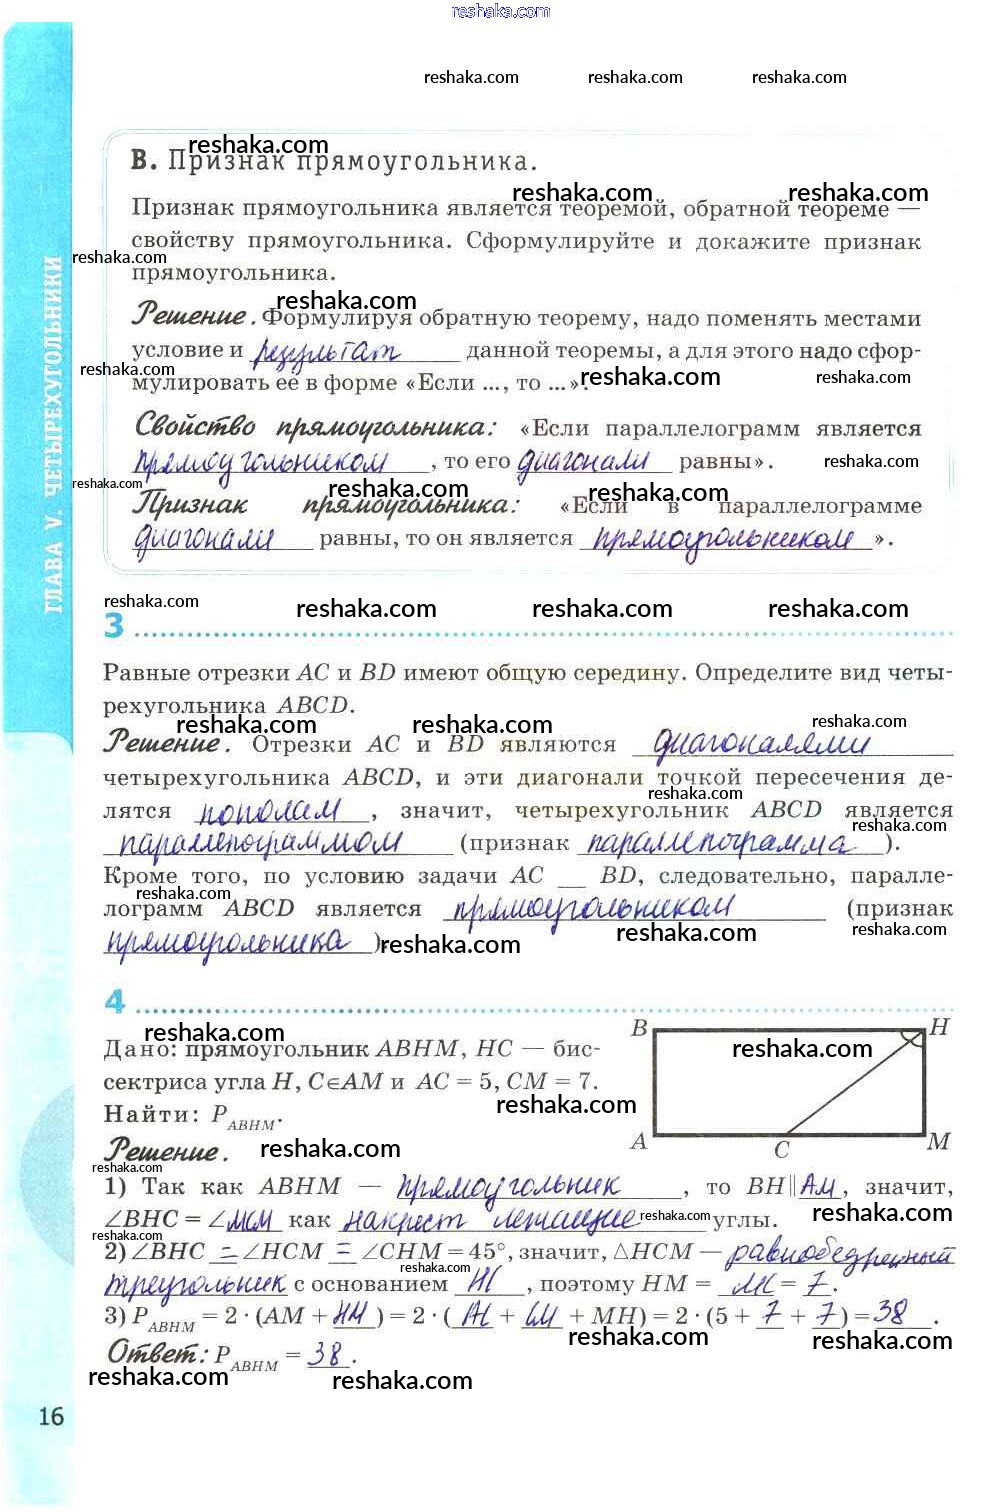 reshaka.com
reshaka.com reshaka.com reshaka.com
reshaka.com
В. Признак прямоугольника.
reshaka.com reshaka.com
Признак прямоугольника является теоремой, обратной теореме —
свойству прямоугольника. Сформулируйте и докажите признак
reshaka.com
прямоугольника.
reshaka.com
Решение. Формулируя обратную теорему, надо поменять местами
условие и результат данной теоремы, а для этого надо сфор-
reshaka.com reshaka.com reshaka.com
мулировать её в форме «Если ..., то ...».
Свойство прямоугольника: «Если параллелограмм является
прямоугольником, то его диагонали равны». reshaka.com
reshaka.com reshaka.com reshaka.com
Признак прямоугольника: «Если в параллелограмме
диагонали равны, то он является прямоугольником».
ГЛАВА V. ЧЕТЫРЕХУГОЛЬНИКИ
reshaka.com reshaka.com reshaka.com reshaka.com
3
Равные отрезки AC и BD имеют общую середину. Определите вид четы-
рехугольника ABCD.
reshaka.com reshaka.com reshaka.com
Решение. Отрезки AC и BD являются диагоналями
четырехугольника ABCD, и эти диагонали точкой пересечения де-
reshaka.com
лятся пополам, значит, четырехугольник ABCD является
reshaka.com
параллелограммом (признак параллелограмма).
Кроме того, по условию задачи AC __ BD, следовательно, паралле-
reshaka.com
лограмм ABCD является прямоугольником (признак
reshaka.com reshaka.com reshaka.com
прямоугольника).
4
reshaka.com reshaka.com
B H
Дано: прямоугольник ABHM, HC — бис-
сектриса угла H, C∈AM и AC = 5, CM = 7.
reshaka.com
Найти: P ABHM.
A C M
Решение. reshaka.com
reshaka.com
1) Так как ABHM — прямоугольник, то BH || AM, значит,
∠BHC = ∠MCM как накрест лежащие углы.
reshaka.com reshaka.com reshaka.com
2) ∠BHC = ∠HCM = ∠CHM = 45°, значит, △HCM — равнобедренный
reshaka.com
треугольник с основанием HC, поэтому HM = MC = 7.
3) P ABHM = 2 · (AM + HM) = 2 · (AC + CM + MH) = 2 · (5 + 7 + 7) = 38.
reshaka.com reshaka.com
Ответ: P ABHM = 38.
reshaka.com reshaka.com
16